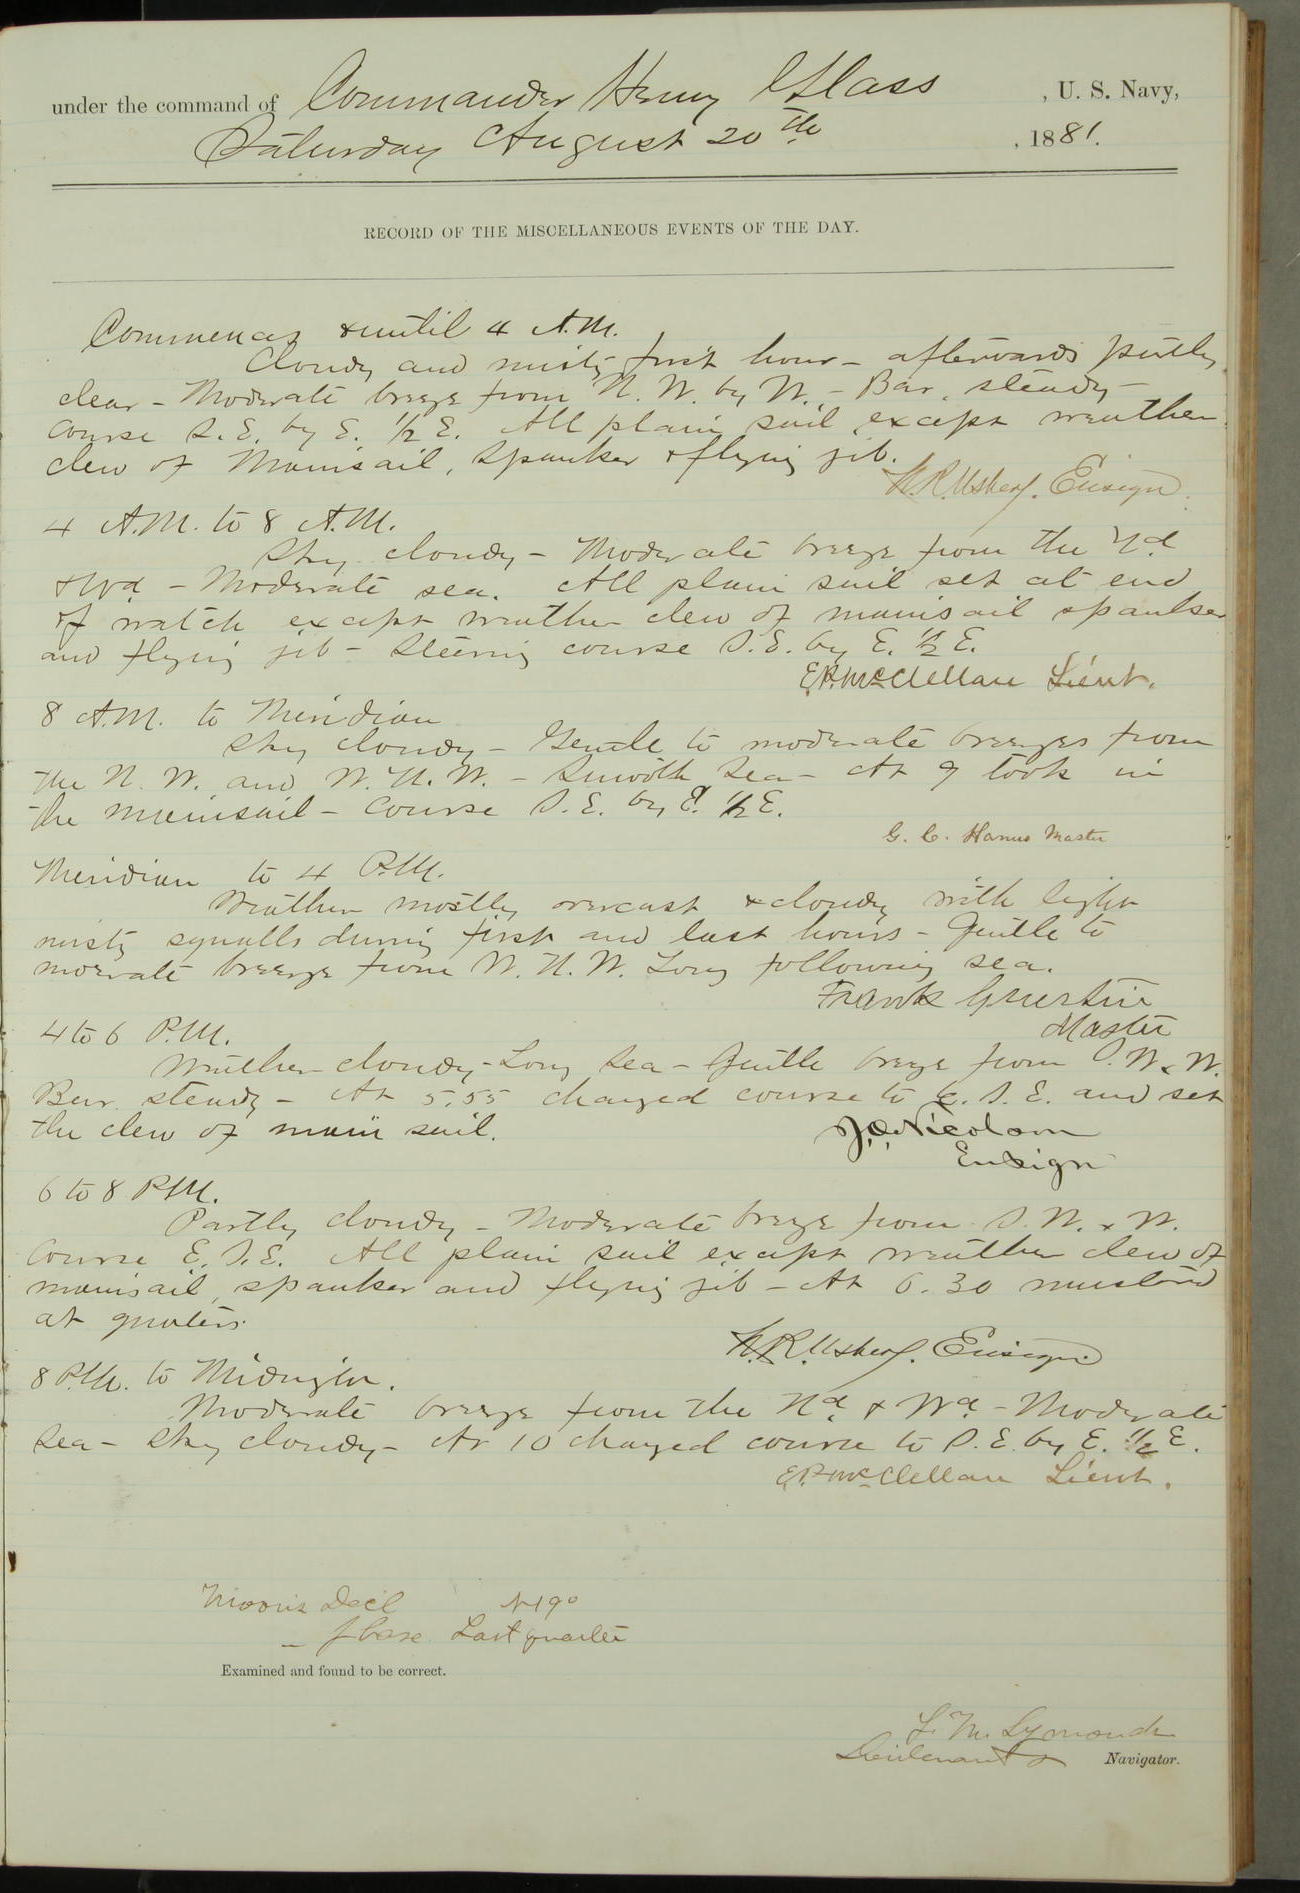 under the command of Commander Henry Glass, U. S. Navy,
Saturday August 20th, 1881.
RECORD OF THE MISCELLANEOUS EVENTS OF THE DAY.
Commences & until 4 A.M.
Cloudy and misty first hour - afterwards partly
clear - Moderate breeze from N. W. by W. - Bar. steady -
Course S. E. by E. 1/2 E. All plain sail except weather
clew of Mainsail, Spanker & flying jib.
N. R. Usher. Ensign.
4 A.M. to 8 A.M.
Sky cloudy - Moderate breeze from the Nd
& Wd - Moderate sea. All plain sail set at end
of watch except weather clew of mainsail spanker
and flying jib - Steering course S. E. by E. 1/2 E.
E.P. McClellan Lieut.
8 A.M. to Meridian
Sky cloudy - Gentle to moderate breezes from
the N. W. and W. N. W. - Smooth Sea - At 9 took in
the mainsail - Course S. E. by E. 1/2 E.
G. C. Hanus Master
Meridian to 4 P.M.
Weather mostly overcast & cloudy with light
misty squalls during first and last hours - Gentle to
moderate breeze from W. N. W. Long following sea.
Frank Guertin
Master
4 to 6 P.M.
Weather cloudy - Long Sea - Gentle breeze from S. W. & W.
Bar. steady - At 5.55 changed course to E. S. E. and set
the clew of main sail.
Ensign
6 to 8 P.M.
Partly cloudy - Moderate breeze from S. W. & W.
Course E. S. E. All plain sail except weather clew of
mainsail, spanker and flying jib - At 6.30 mustered
at quarters.
N. R. Usher. Ensign
8 P.M. to Midnight.
Moderate breeze from the Nd & Wd - Moderate
Sea - Sky cloudy - At 10 changed course to S. E. by E. 1/2 E.
E.P. McClellan Lieut.
Moon's Decl N 19°
" phase Last quarter
Examined and found to be correct.
F. M. Symonds
Lieutenant & Navigator.